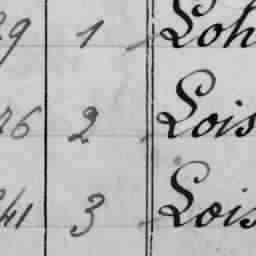 29 1 Loh
26 2 Lois
241 3 Lois